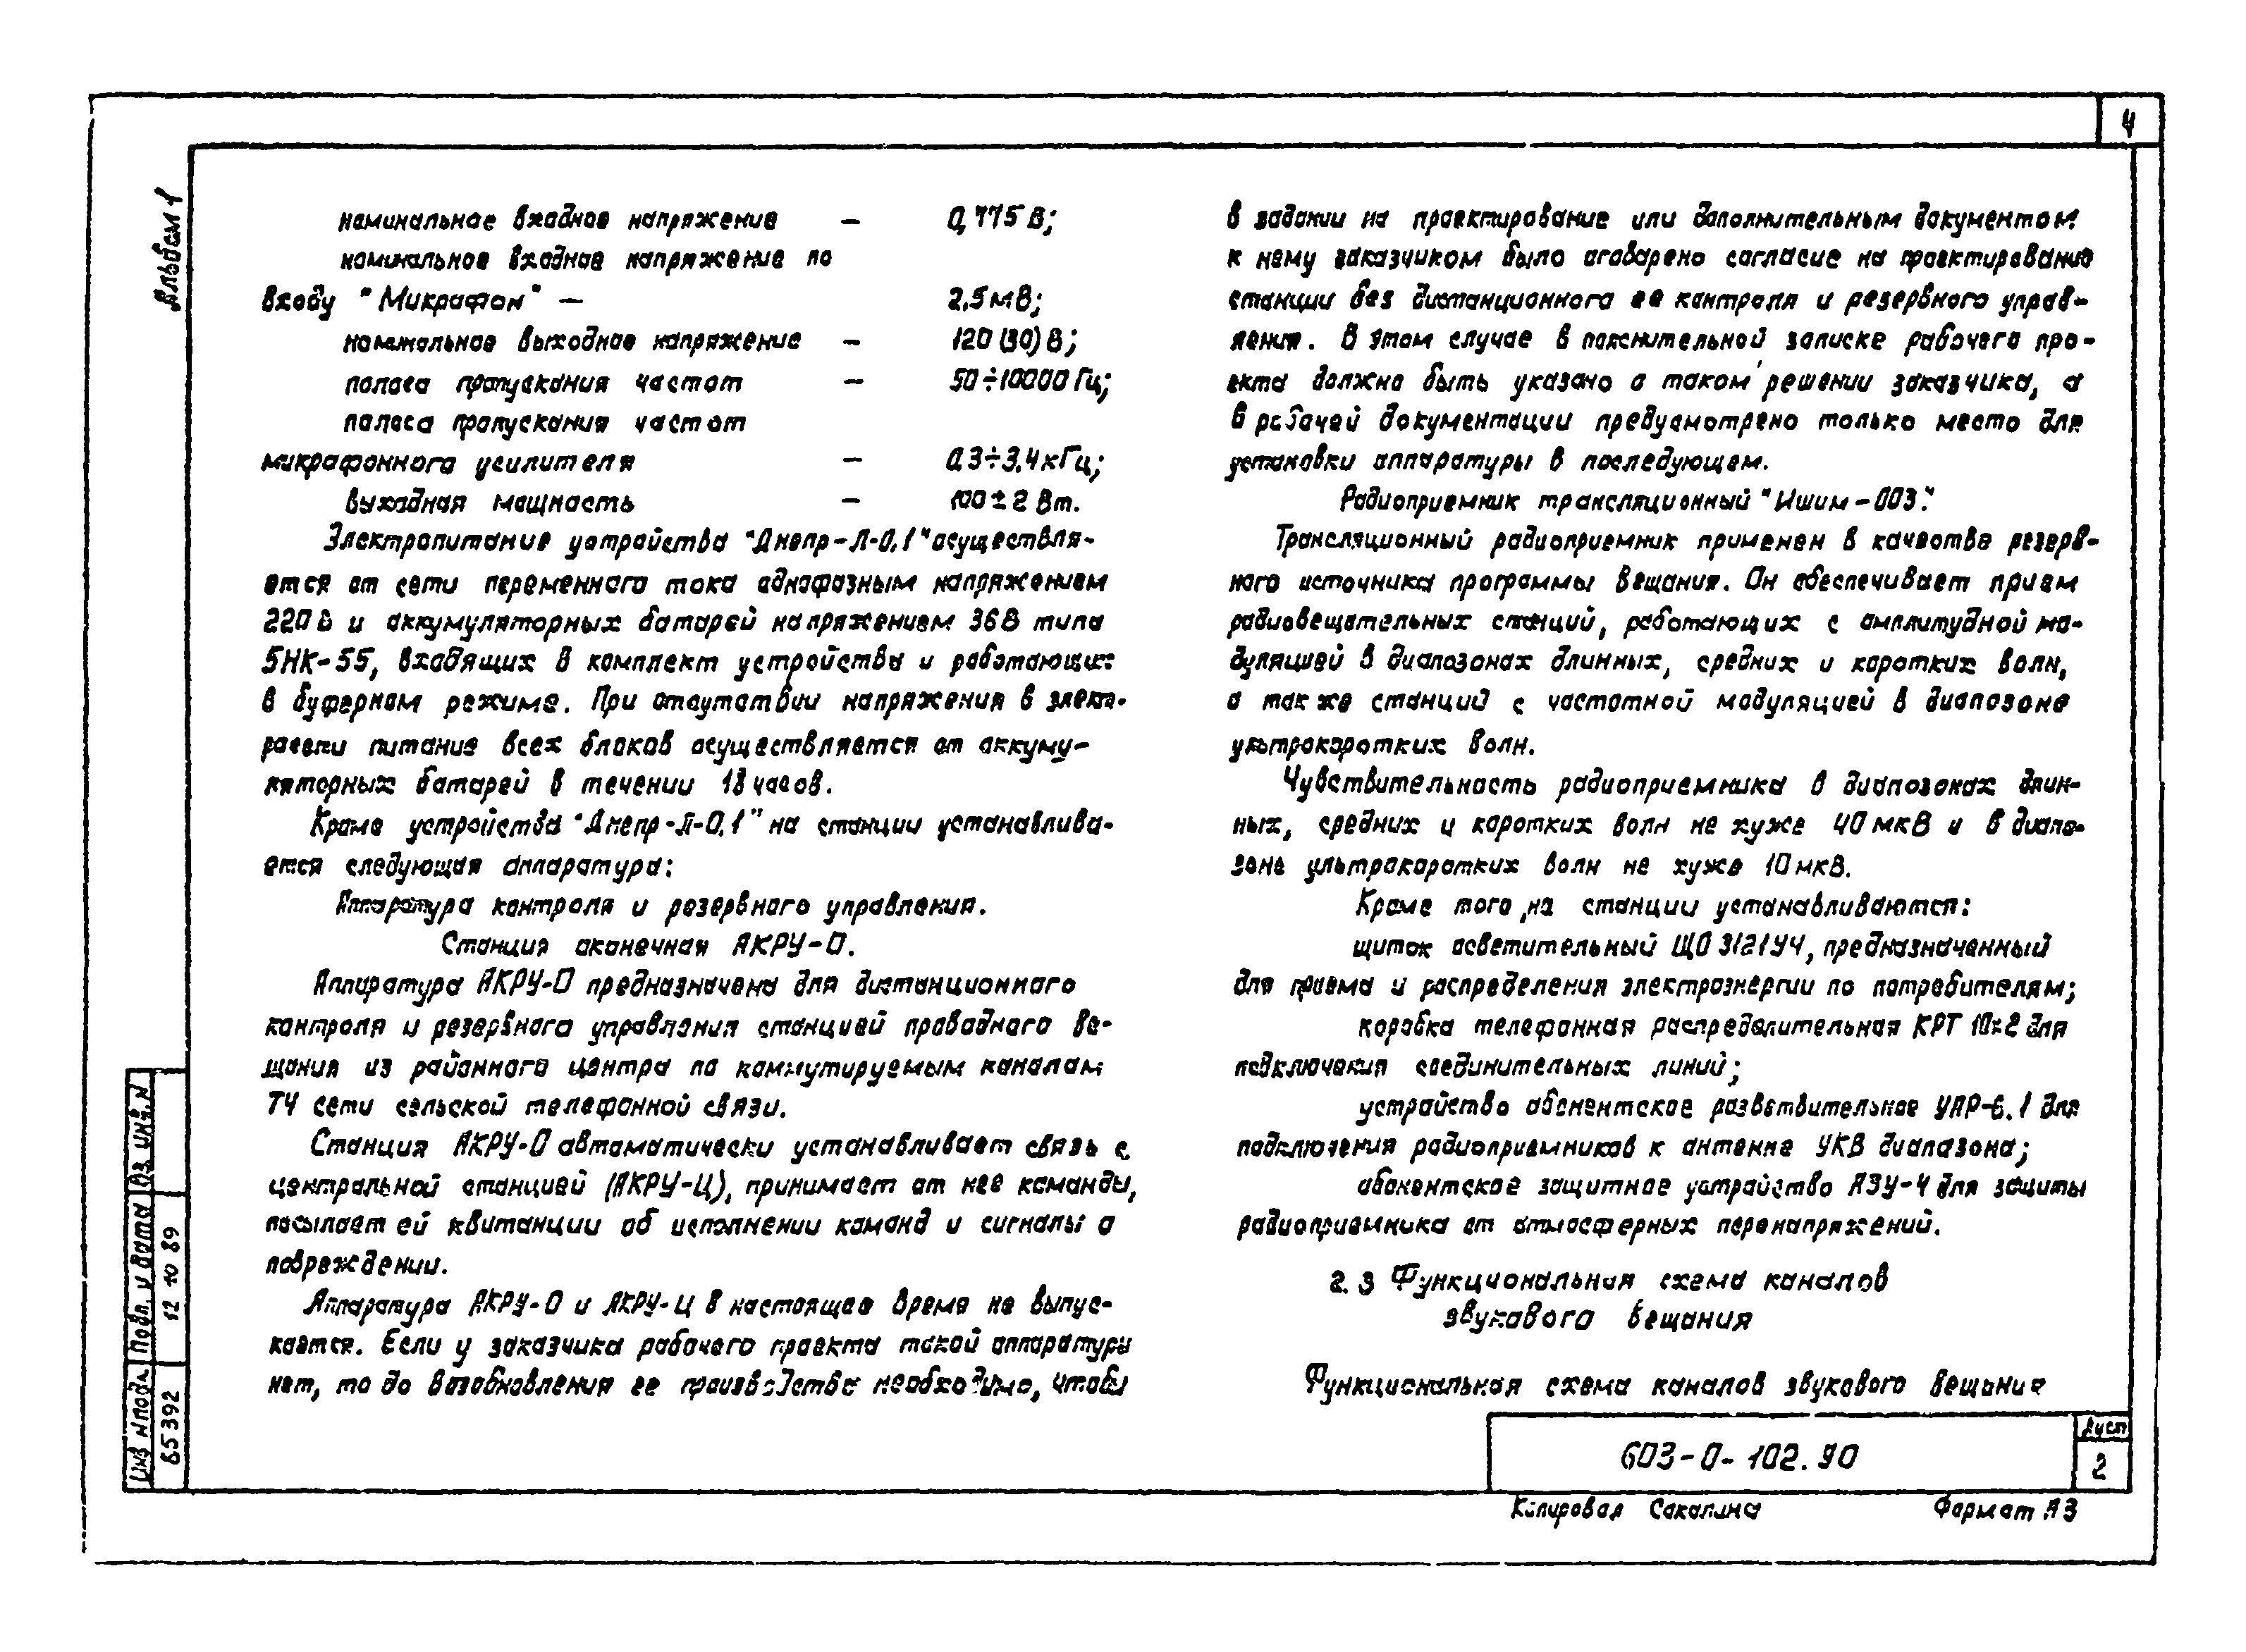 4
Альбом 1
номинальное входное напряжение – 0,775 В;
номинальное входное напряжение по
входу "Микрофон" – 2,5 мВ;
номинальное выходное напряжение – 120 (30) В;
полоса пропускания частот – 50÷10000 Гц;
полоса пропускания частот
микрофонного усилителя – 0,3÷3,4 кГц;
выходная мощность – 100 ± 2 Вт.
Электропитание устройства "Днепр-Л-0,1" осуществля-
ется от сети переменного тока однофазным напряжением
220 В и аккумуляторных батарей напряжением 36В типа
5НК-55, входящих в комплект устройства и работающих
в буферном режиме. При отсутствии напряжения в элект-
росети питание всех блоков осуществляется от аккуму-
ляторных батарей в течении 18 часов.
Кроме устройства "Днепр-Л-0,1" на станции устанавлива-
ется следующая аппаратура:
Аппаратура контроля и резервного управления.
Станция оконечная АКРУ-О.
Аппаратура АКРУ-О предназначена для дистанционного
контроля и резервного управления станцией проводного ве-
щания из районного центра по коммутируемым каналам
ТЧ сети сельской телефонной связи.
Станция АКРУ-О автоматически устанавливает связь с
центральной станцией (АКРУ-Ц), принимает от нее команды,
посылает ей квитанции об исполнении команд и сигналы о
повреждении.
Аппаратура АКРУ-О и АКРУ-Ц в настоящее время не выпус-
кается. Если у заказчика рабочего проекта такой аппаратуры
нет, то до возобновления ее производства необходимо, чтобы
в задании на проектирование или дополнительным документом
к нему заказчиком было оговорено согласие на проектирование
станции без дистанционного ее контроля и резервного управ-
ления. В этом случае в пояснительной записке рабочего про-
екта должно быть указано о таком решении заказчика, а
в рабочей документации предусмотрено только место для
установки аппаратуры в последующем.
Радиоприемник трансляционный "Ишим-003".
Трансляционный радиоприемник применен в качестве резерв-
ного источника программы вещания. Он обеспечивает прием
радиовещательных станций, работающих с амплитудной мо-
дуляцией в диапозонах длинных, средних и коротких волн,
а также станций с частотной модуляцией в диапозоне
ультракоротких волн.
Чувствительность радиоприемника в диапозонах длин-
ных, средних и коротких волн не хуже 40 мкВ и в диапо-
зоне ультракоротких волн не хуже 10 мкВ.
Кроме того, на станции устанавливаются:
щиток осветительный ЩО 3121У4, предназначенный
для приема и распределения электроэнергии по потребителям;
коробка телефонная распределительная КРТ 10х2 для
подключения соединительных линий;
устройство абонентское разветвительное УАР-6.1 для
подключения радиоприемников к антенне УКВ диапазона;
абонентское защитное устройство АЗУ-4 для защиты
радиоприемника от атмосферных перенапряжений.
2.3 Функциональная схема каналов
звукового вещания
Функциональная схема каналов звукового вещания
Инв N подл. Подп. и дата Вз. инв. N
65392 12 10 89
603-0-102.90
Лист
2
Копировал Сокалина Формат А3